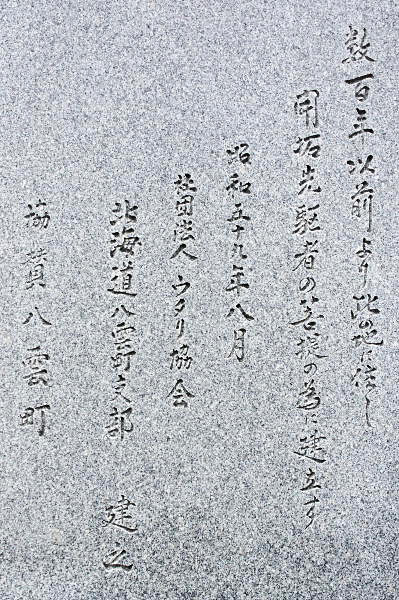 数百年以前より此の地に住し
開拓先駆者の菩提の為に建立す
昭和五十九年八月
社団法人ウタリ協会
北海道八雲町支部 建之
協賛八雲町